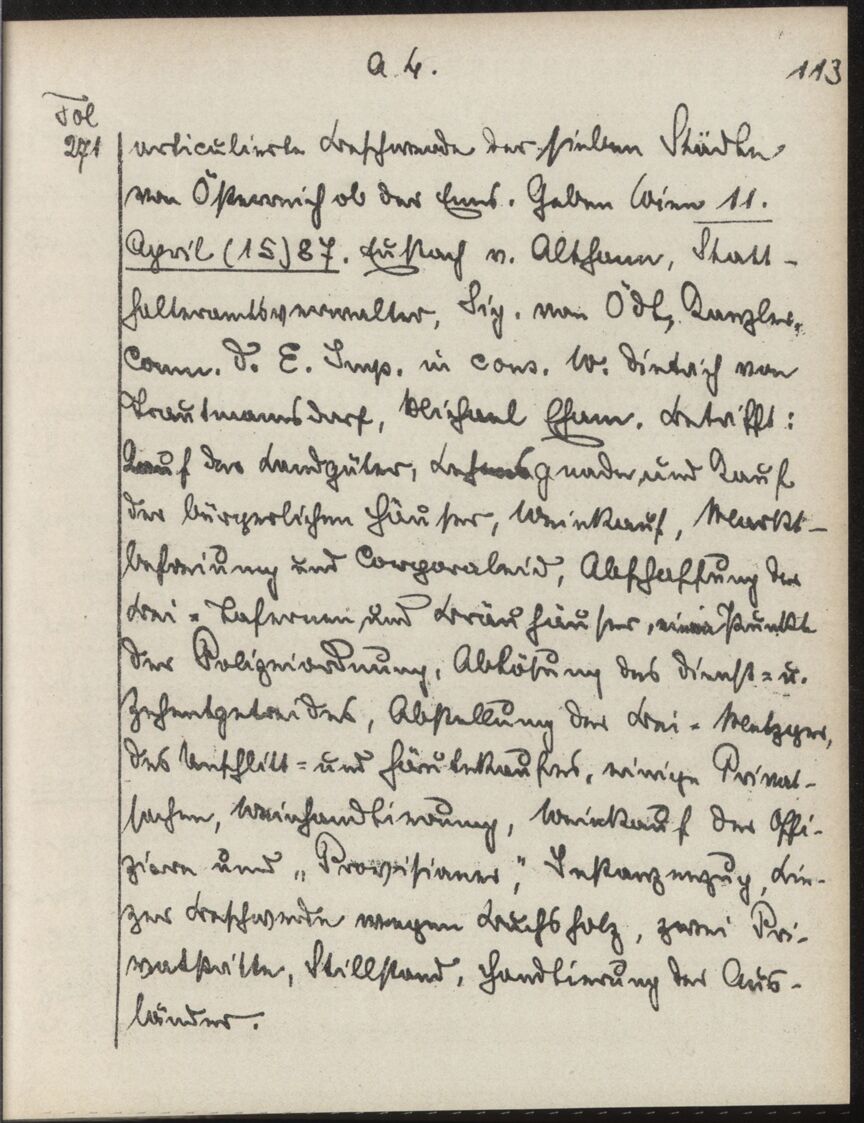 A 4.
113
Fol
271
articulierte Beschwerde der sieben Städte
von Österreich ob der Enns. Geben Wien 11.
April (15)87. Eustach v. Althann, Statt-
halteramtsverwalter, Sig. von Ödt, Kanzler,
Comm. D. E. Imp. in cons. W. Dietrich von
Trautmannsdorf, Michael Eham. Betrifft:
Kauf der Landgüter, Lehensgnade und Kauf
der bürgerlichen Häuser, Weinkauf, Markt-
befreiung und Corporaleid, Abschaffung der
Frei-Tafernen und Bräuhäuser, Punkte
der Polizeiordnung, Ablösung des Dienst- u.
Zehentgetreides, Abstellung der Frei-Metzger,
des Unschlitt- und Häutekaufes, einige Privat-
sachen, Weinhandtierung, Weinkauf der Offi-
ziere und "Provisianer", Instanzenzug, Lin-
zer Beschwerde wegen Buchsholz, zwei Pri-
vatstritte, Stillstand, Handtierung der Aus-
länder.